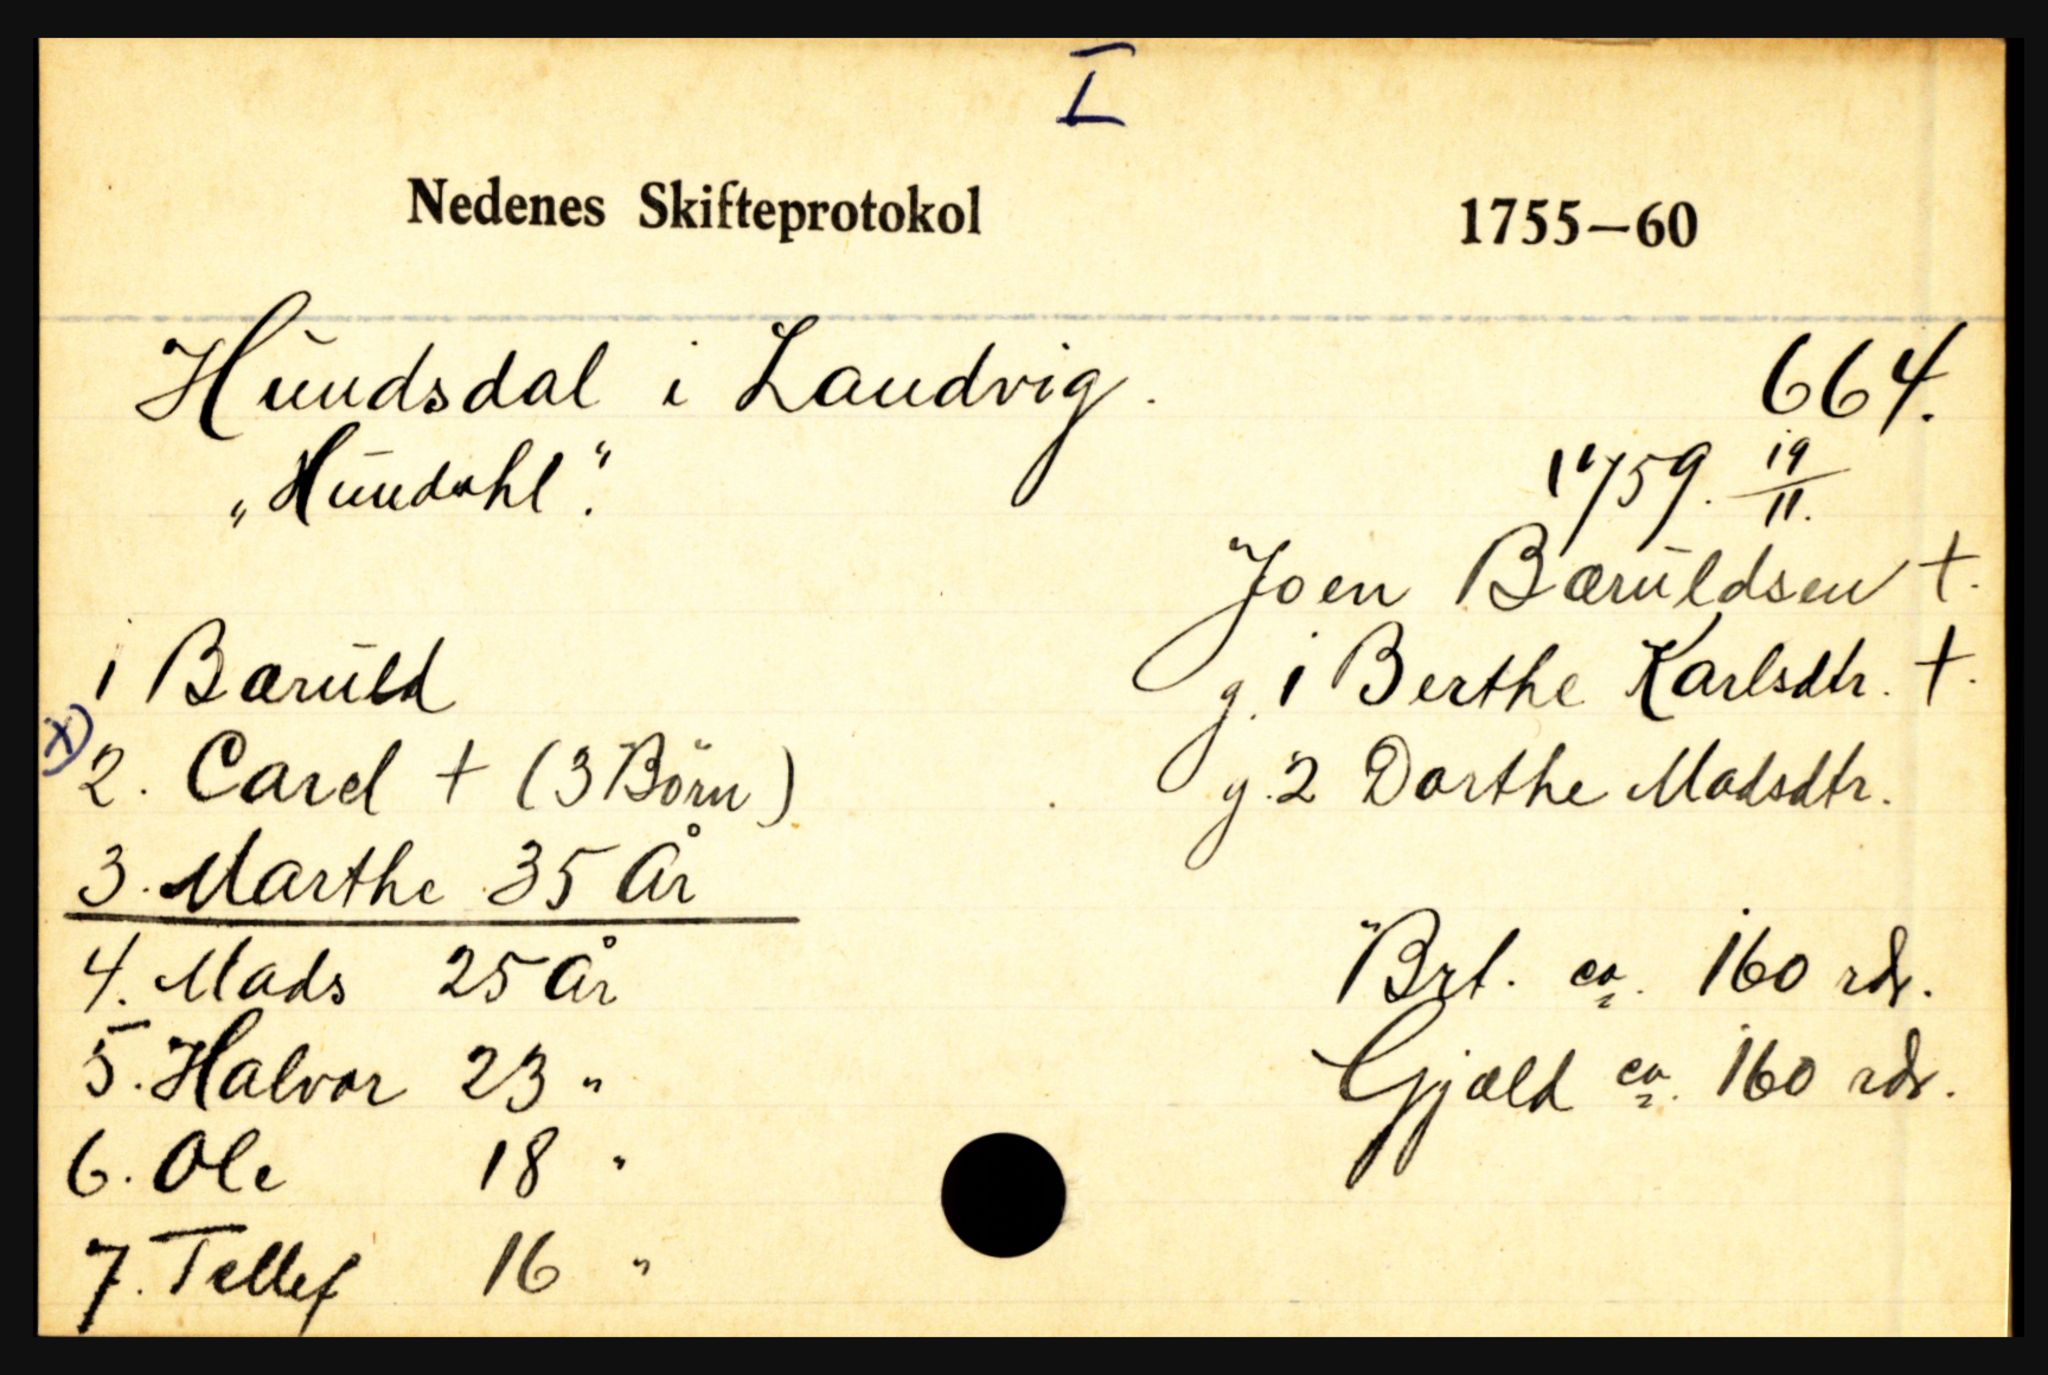 I
Nedenes Skifteprotokol 1755—60
Hundsdal i Landvig. 664.
„Hundahl". 1759. 19/11.
Joen Bæruldsen +.
g. 1 Berthe Karlsdtr. +.
g. 2 Dorthe Madsdtr.
1 Bæruld
x) 2. Carel + (3 Börn)
3. Marthe 35 År
4. Mads 25 År
5. Halvor 23 "
6. Ole 18 "
7. Tellef 16 "
Brt. ca. 160 rdr.
Gjæld ca. 160 rdr.